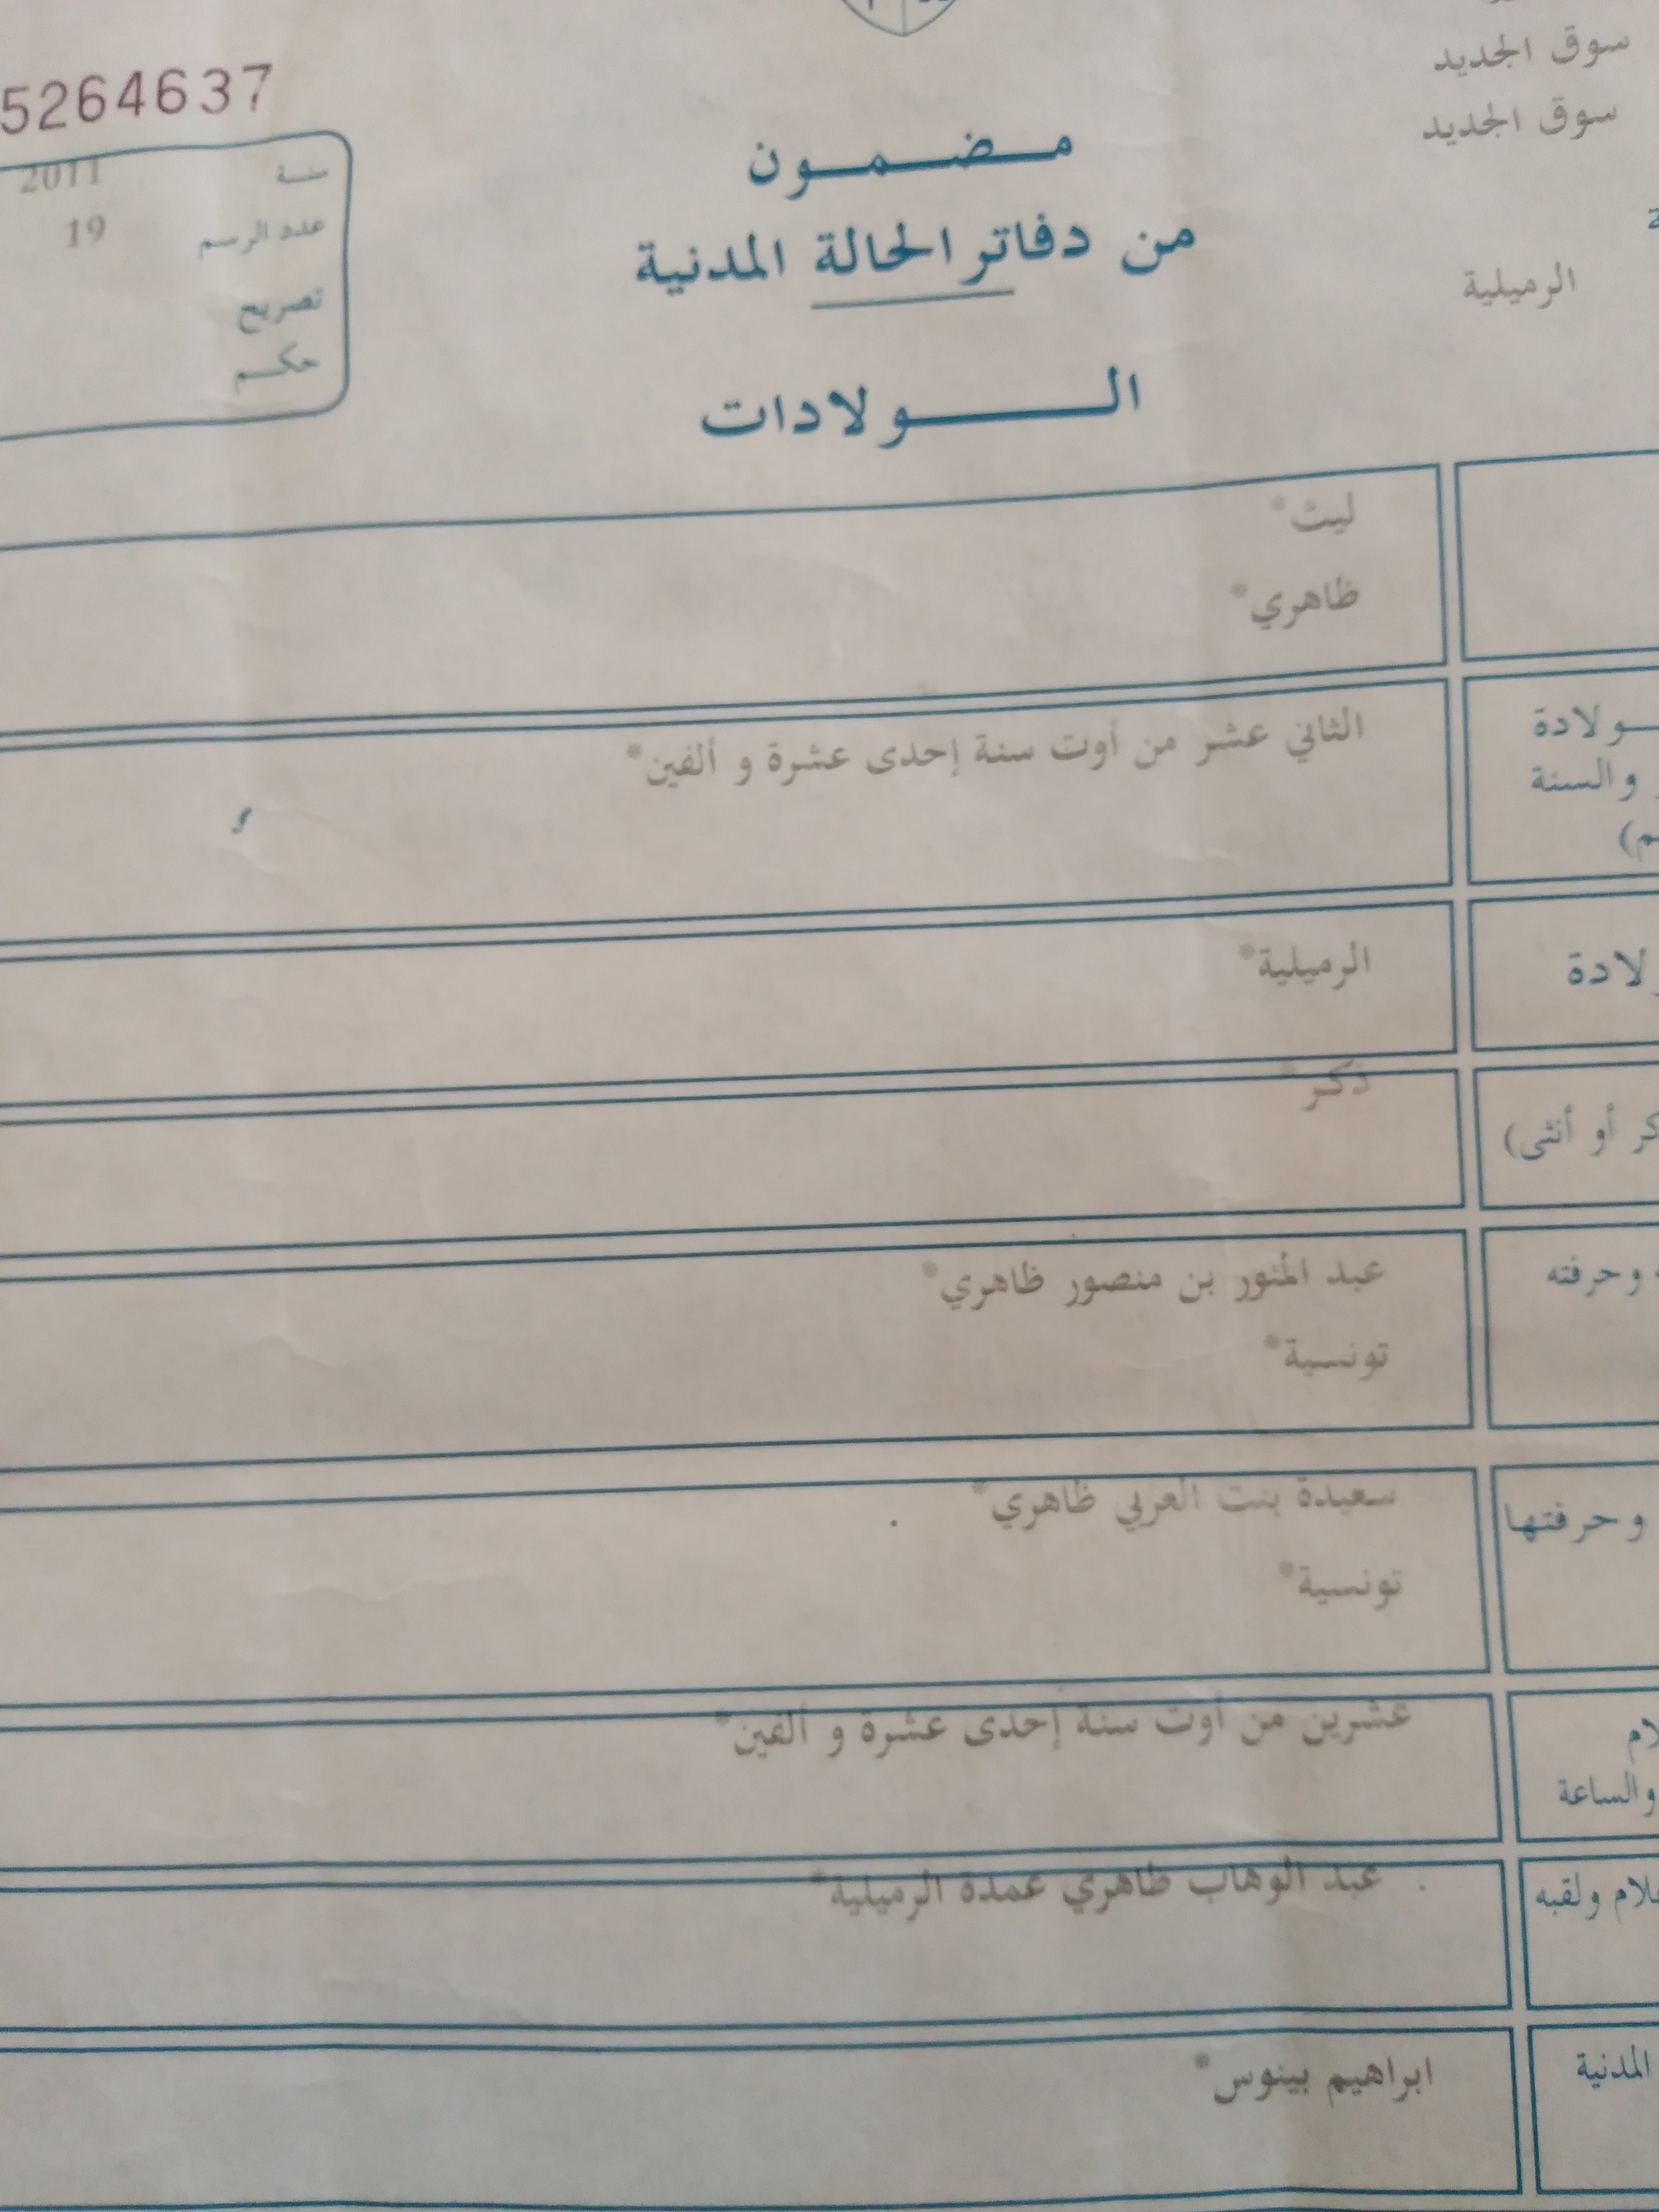 سوق الجديد
سوق الجديد
الرميلية
5264637
سنة 2011
عدد الرسم 19
تصريح
حكم
مضمون
من دفاتر الحالة المدنية
الولادات
ليث*
ظاهري*
ولادة
والسنة
الثاني عشر من أوت سنة إحدى عشرة و ألفين*
لادة
الرميلية*
كر أو أنثى)
ذكر*
وحرفته
عبد المنور بن منصور ظاهري*
تونسية*
وحرفتها
سعيدة بنت العربي ظاهري*
تونسية*
لام
والساعة
عشرين من أوت سنة إحدى عشرة و ألفين*
لام ولقبه
عبد الوهاب ظاهري عمدة الرميلية*
المدنية
ابراهيم بينوس*